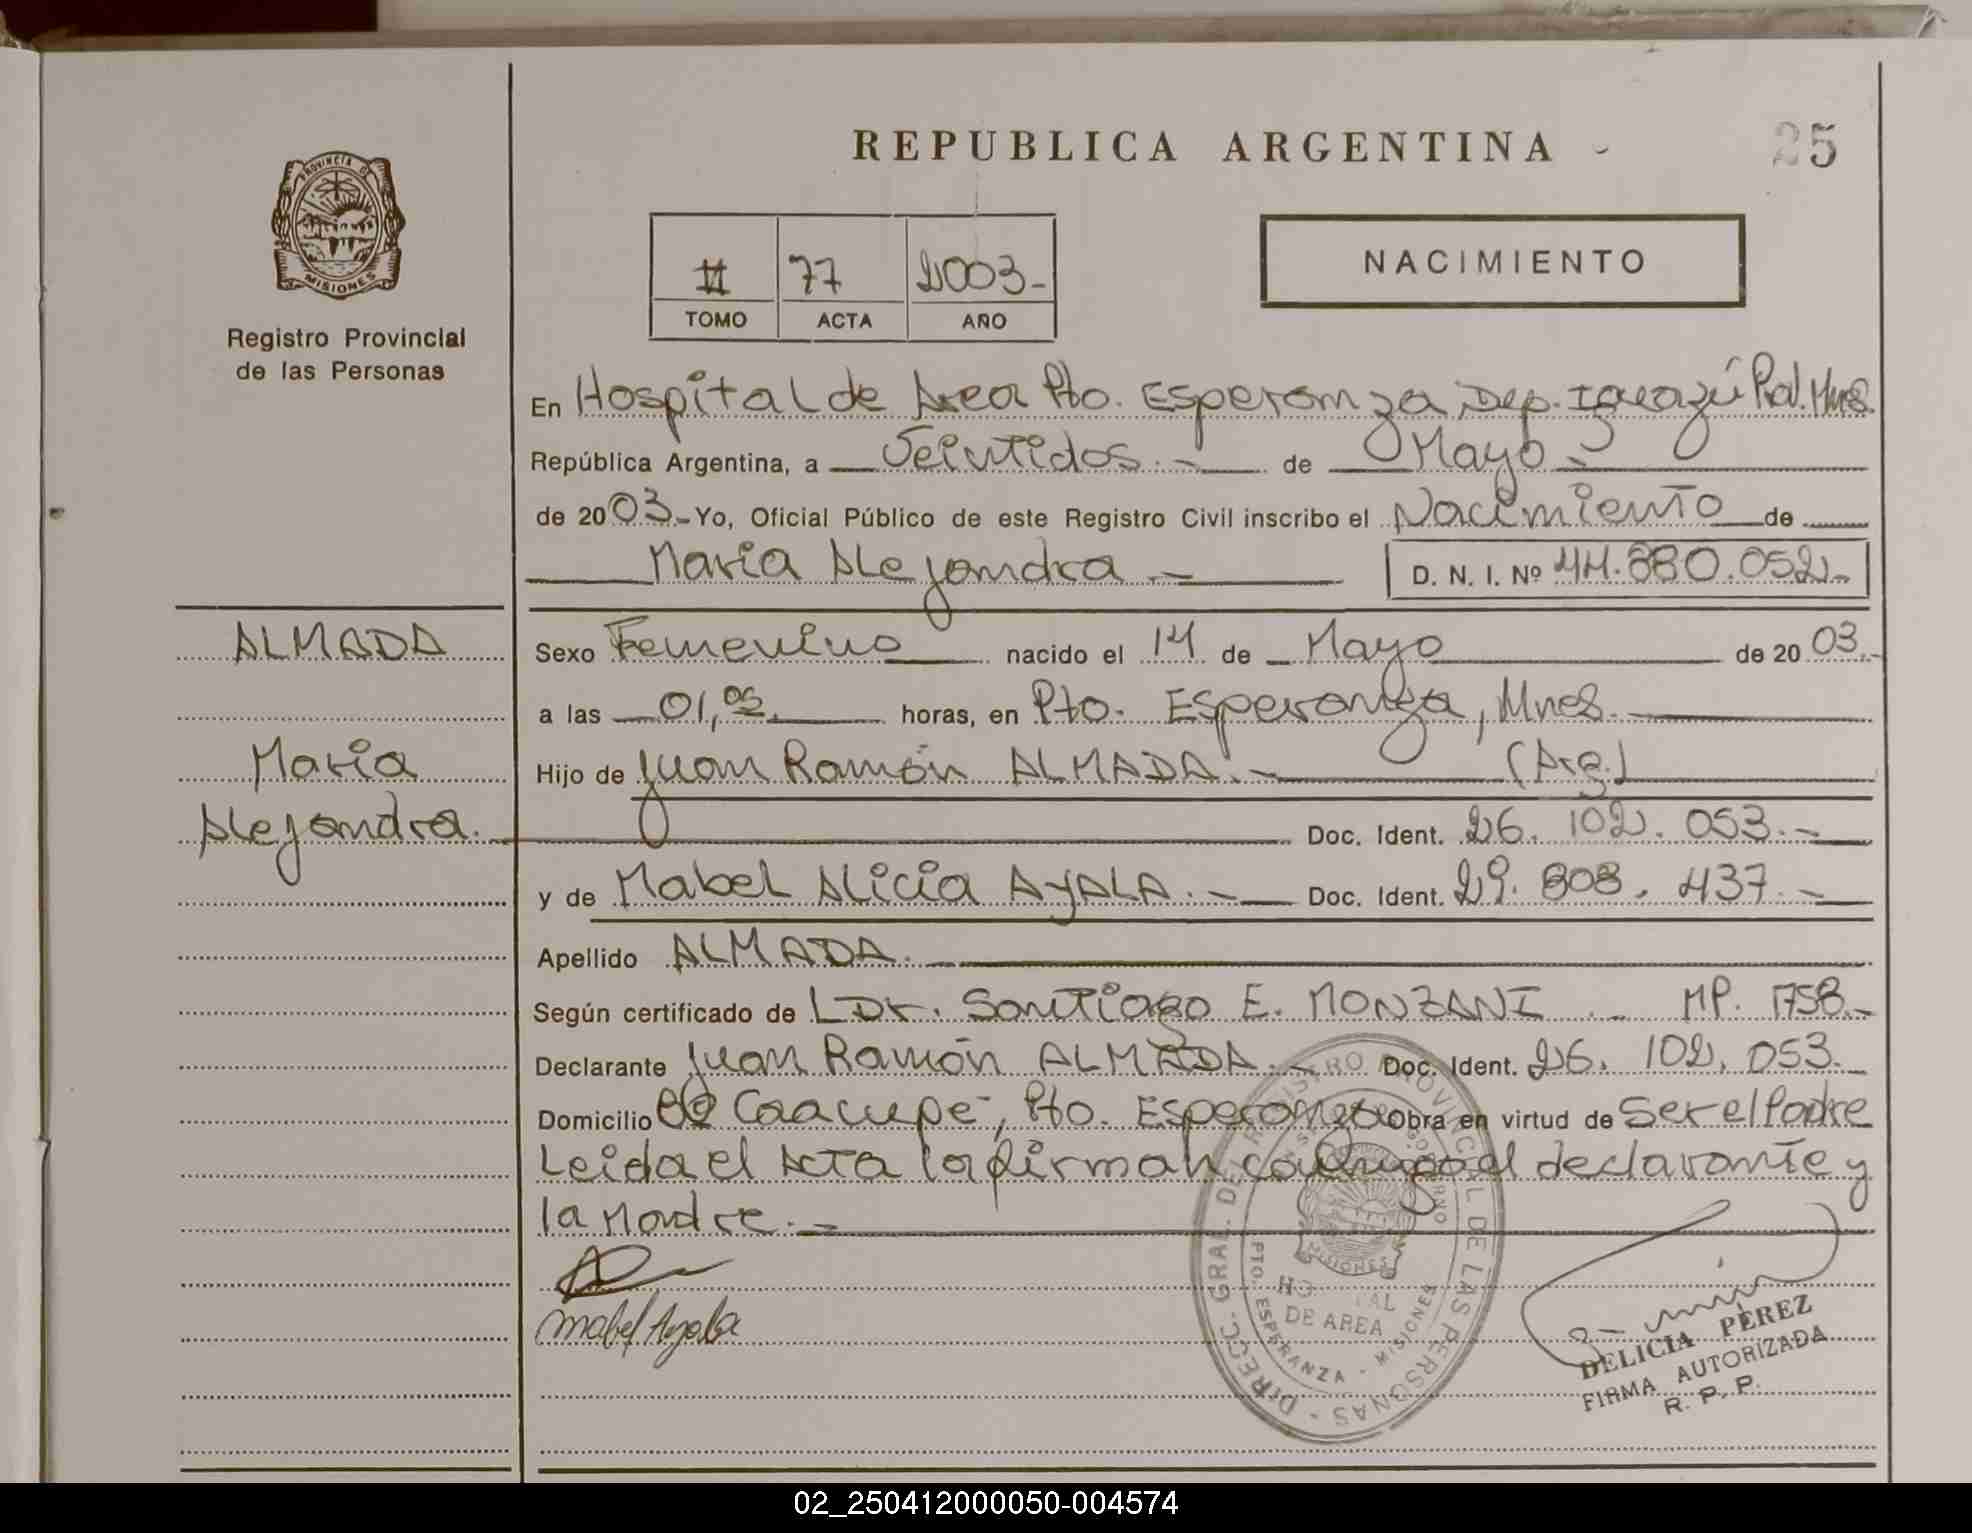 REPUBLICA ARGENTINA
25
PROVINCIA DE
MISIONES
Registro Provincial
de las Personas
II 77 2003-
TOMO ACTA AÑO
NACIMIENTO
En Hospital de Area Pto. Esperanza Dep. Iguazú Prov. Mnes.
República Argentina, a Veintidos.- de Mayo-
de 2003.- Yo, Oficial Público de este Registro Civil inscribo el Nacimiento de
Maria Alejandra.- D. N. I. Nº 44.880.052.-
ALMADA
Maria
Alejandra.
Sexo Femenino nacido el 14 de Mayo de 2003.-
a las 01,05 horas, en Pto. Esperanza, Mnes.-
Hijo de Juan Ramón ALMADA.- (Arg.)
Doc. Ident. 26. 102. 053.-
y de Mabel Alicia AyALA.- Doc. Ident. 29. 808. 437.-
Apellido ALMADA.-
Según certificado de Dr. Santiago E. MONZANI MP. 1758.-
Declarante Juan Ramón ALMADA.- Doc. Ident. 26. 102. 053.
Domicilio Caacupé, Pto. Esperanza Obra en virtud de Ser el Padre
Leida el Acta la firman conmigo el declarante y
la Madre.-
Mabel Ayala
DIRECC. GRAL. DEL REGISTRO PROVINCIAL DE LAS PERSONAS
MISIONES
DE AREA
PTO. ESPERANZA - MISIONES
DELICIA PÉREZ
FIRMA AUTORIZADA
R. P. P.
02_250412000050-004574